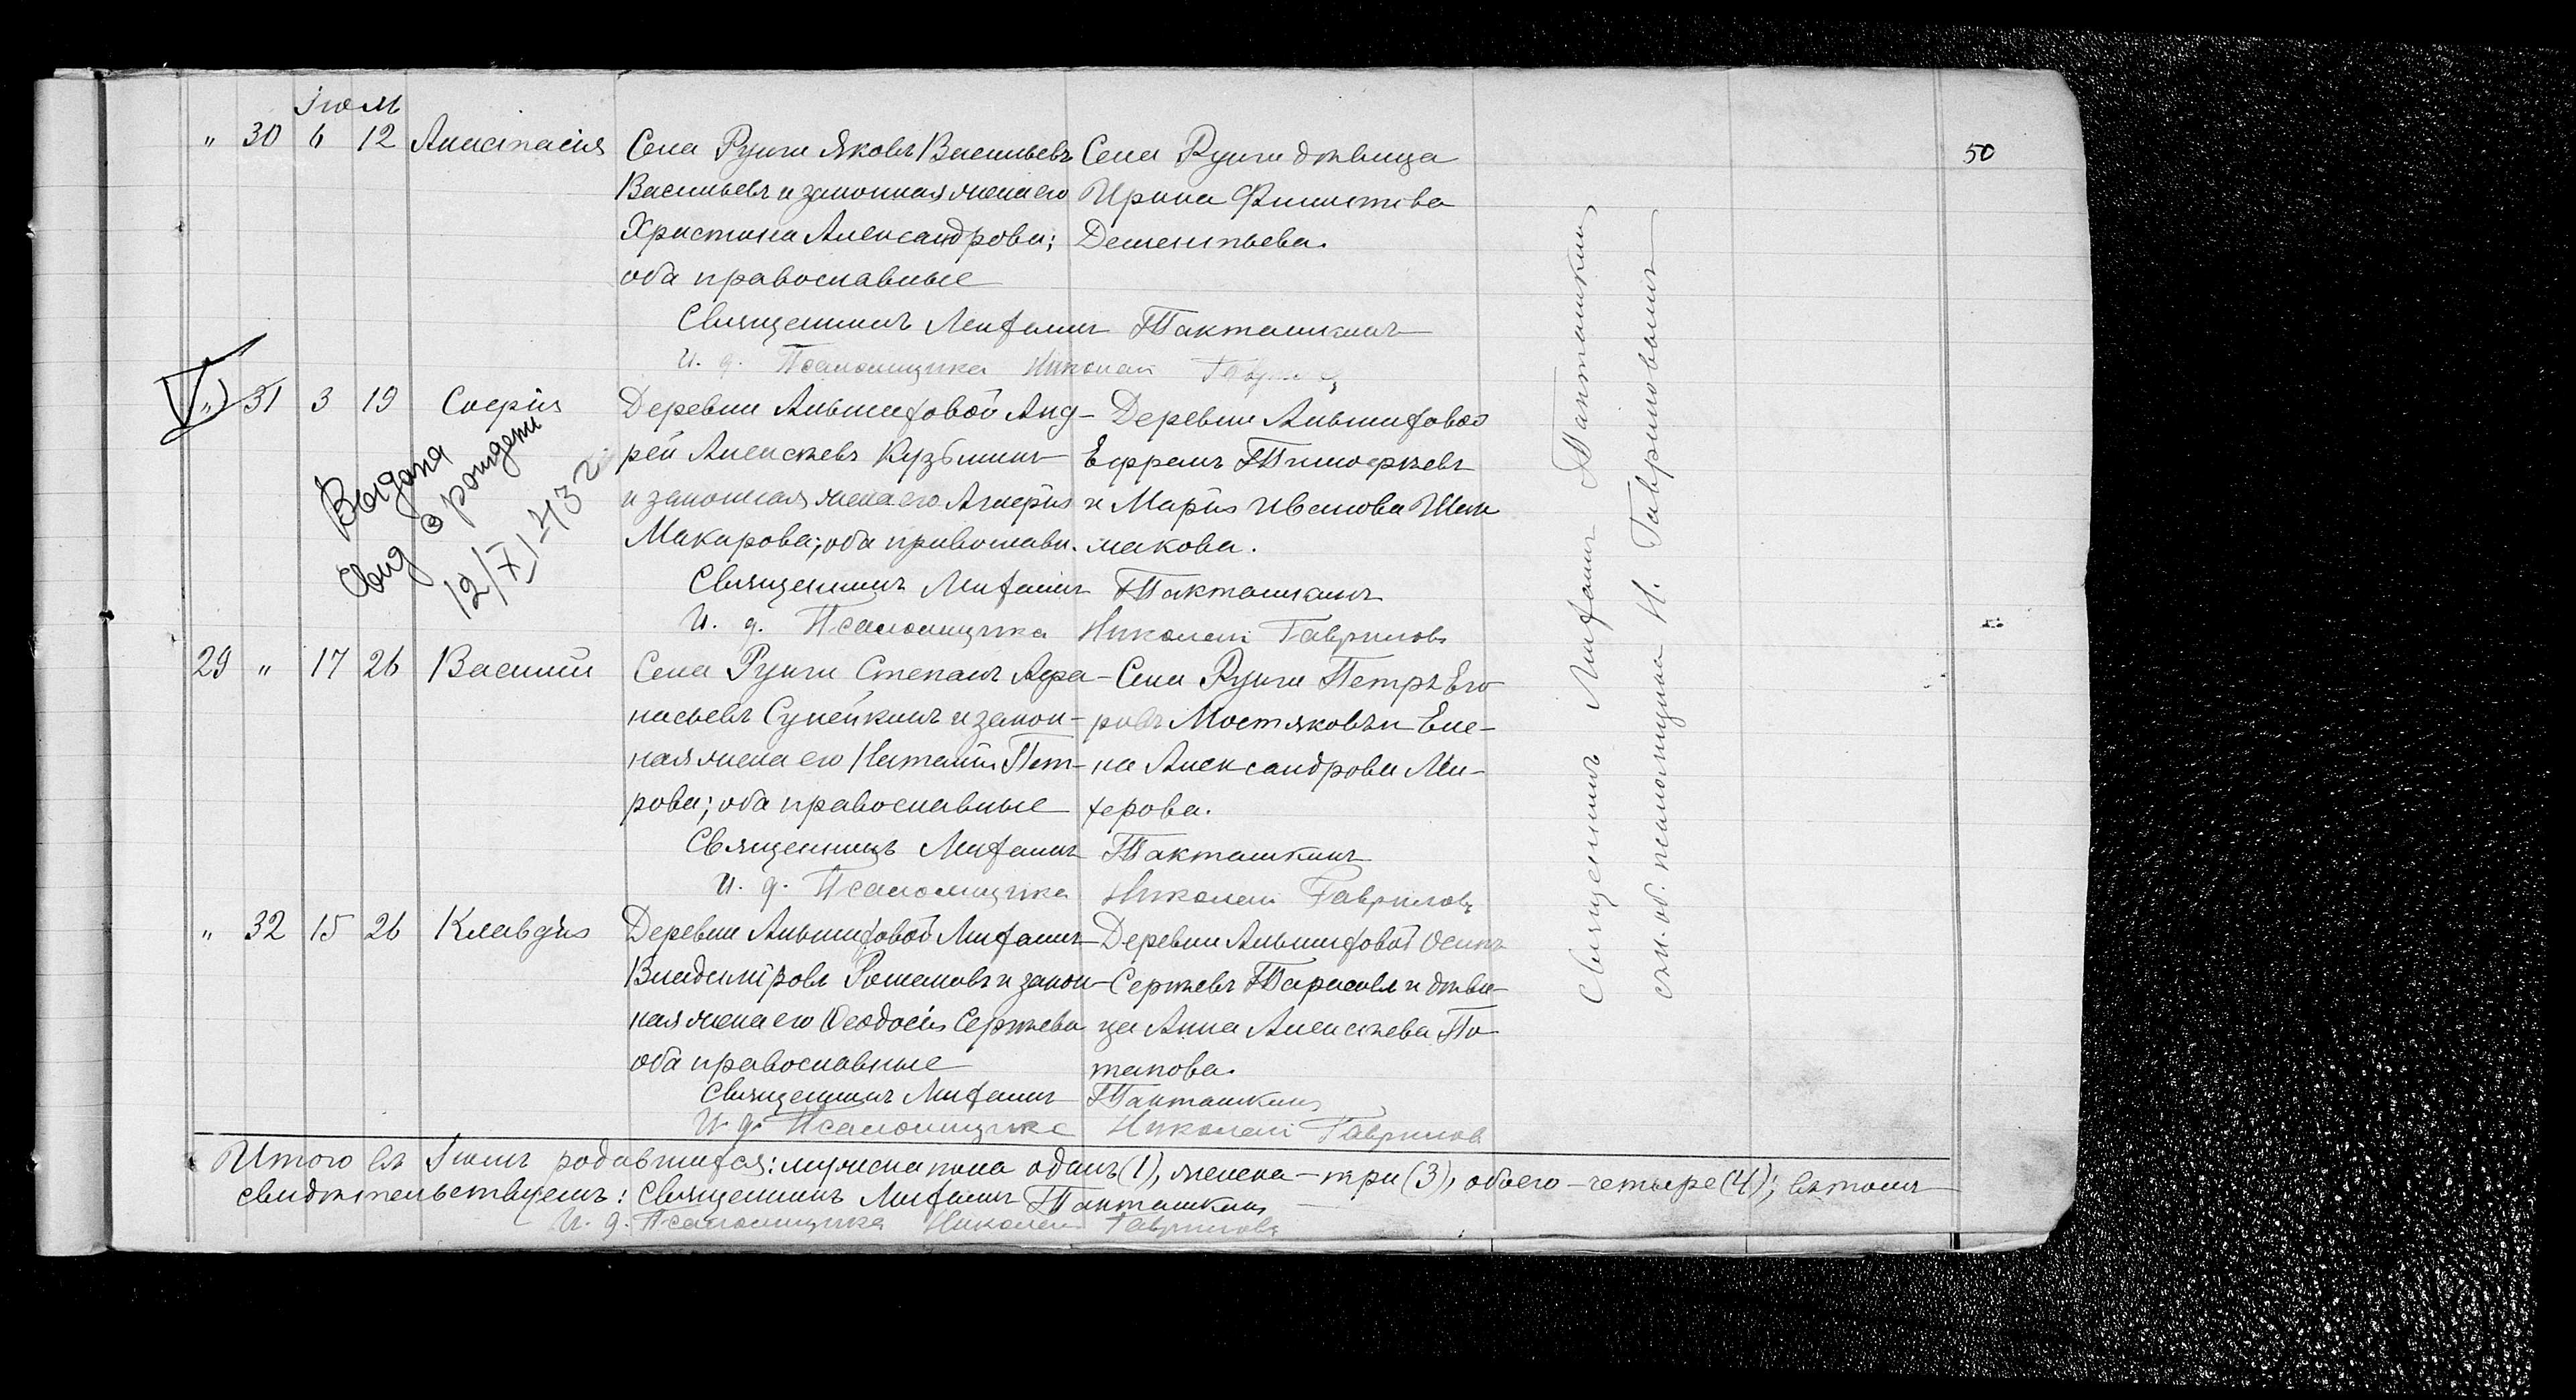 Іюль
" 30 6 12 Анастасія
Села Рунги Яковъ Васильевъ
Васильевъ и законная жена его
Христина Александрова;
оба православные
Села Рунги дѣвица
Ирина Филиппова
Дементьева.
50
Священникъ Митфанъ Такташкинъ
И. д. Псаломщика Николай Гаврилов
" 31 3 19 Софія
Деревни Альшиховой Анд-
рей Алексѣевъ Кузьминъ
и законная жена его Агнія
Макарова; оба православн.
Деревни Альшиховой
Ефремъ Тимофѣевъ
и Марія Иванова Шек
макова.
Выдана
свид о рожден
12/XI-43 г
Священникъ Митфанъ Такташкинъ
И. д. Псаломщика Николай Гавриловъ
29 " 17 26 Василій
Села Рунги Степанъ Афа-
насьевъ Супейкинъ и закон-
ная жена его Наталія Пет-
рова; оба православные
Села Рунги Петръ Его
ровъ Мостяковъ и Еле-
на Александрова Ми-
херова.
Священникъ Митфанъ Такташкинъ
И. д. Псаломщика Николай Гавриловъ
" 32 15 26 Клавдія
Деревни Альшиховой Митфанъ
Владиміровъ Романовъ и закон-
ная жена его Ѳеодосія Сергѣева
оба православные
Деревни Альшиховой Осипъ
Сергѣевъ Тарасовъ и дѣви-
ца Анна Алексѣева По
тапова.
Священникъ Митфанъ Такташкинъ
И. д. Псаломщика Николай Гаврилов
Священникъ Митфанъ Такташкинъ
исп. об. псаломщика Н. Гавриловъ
Итого въ Іюлѣ родившихся: мужска пола одинъ (1), женска - три (3), обоего - четыре (4); въ томъ
свидѣтельствуемъ: Священникъ Митфанъ Такташкинъ
И. д. Псаломщика Николай Гавриловъ